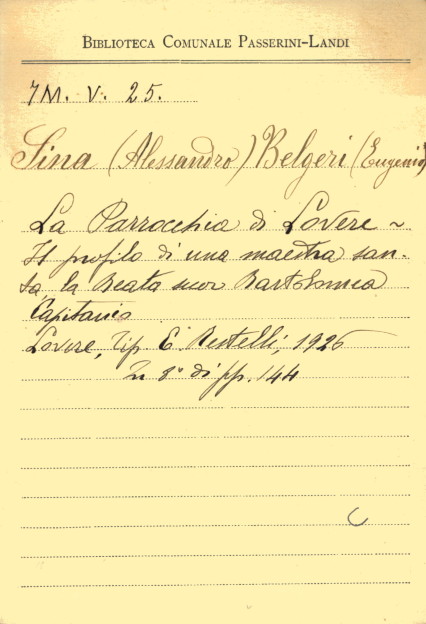 BIBLIOTECA COMUNALE PASSERINI-LANDI
7M. V. 25.
Sina (Alessandro) Belgeri (Eugenio)
La Parrocchia di Lovere ~
Il profilo di una maestra san-
ta la Beata suor Bartolomea
Capitanio
Lovere, Tip. E. Restelli, 1926
In 8° di pp. 144